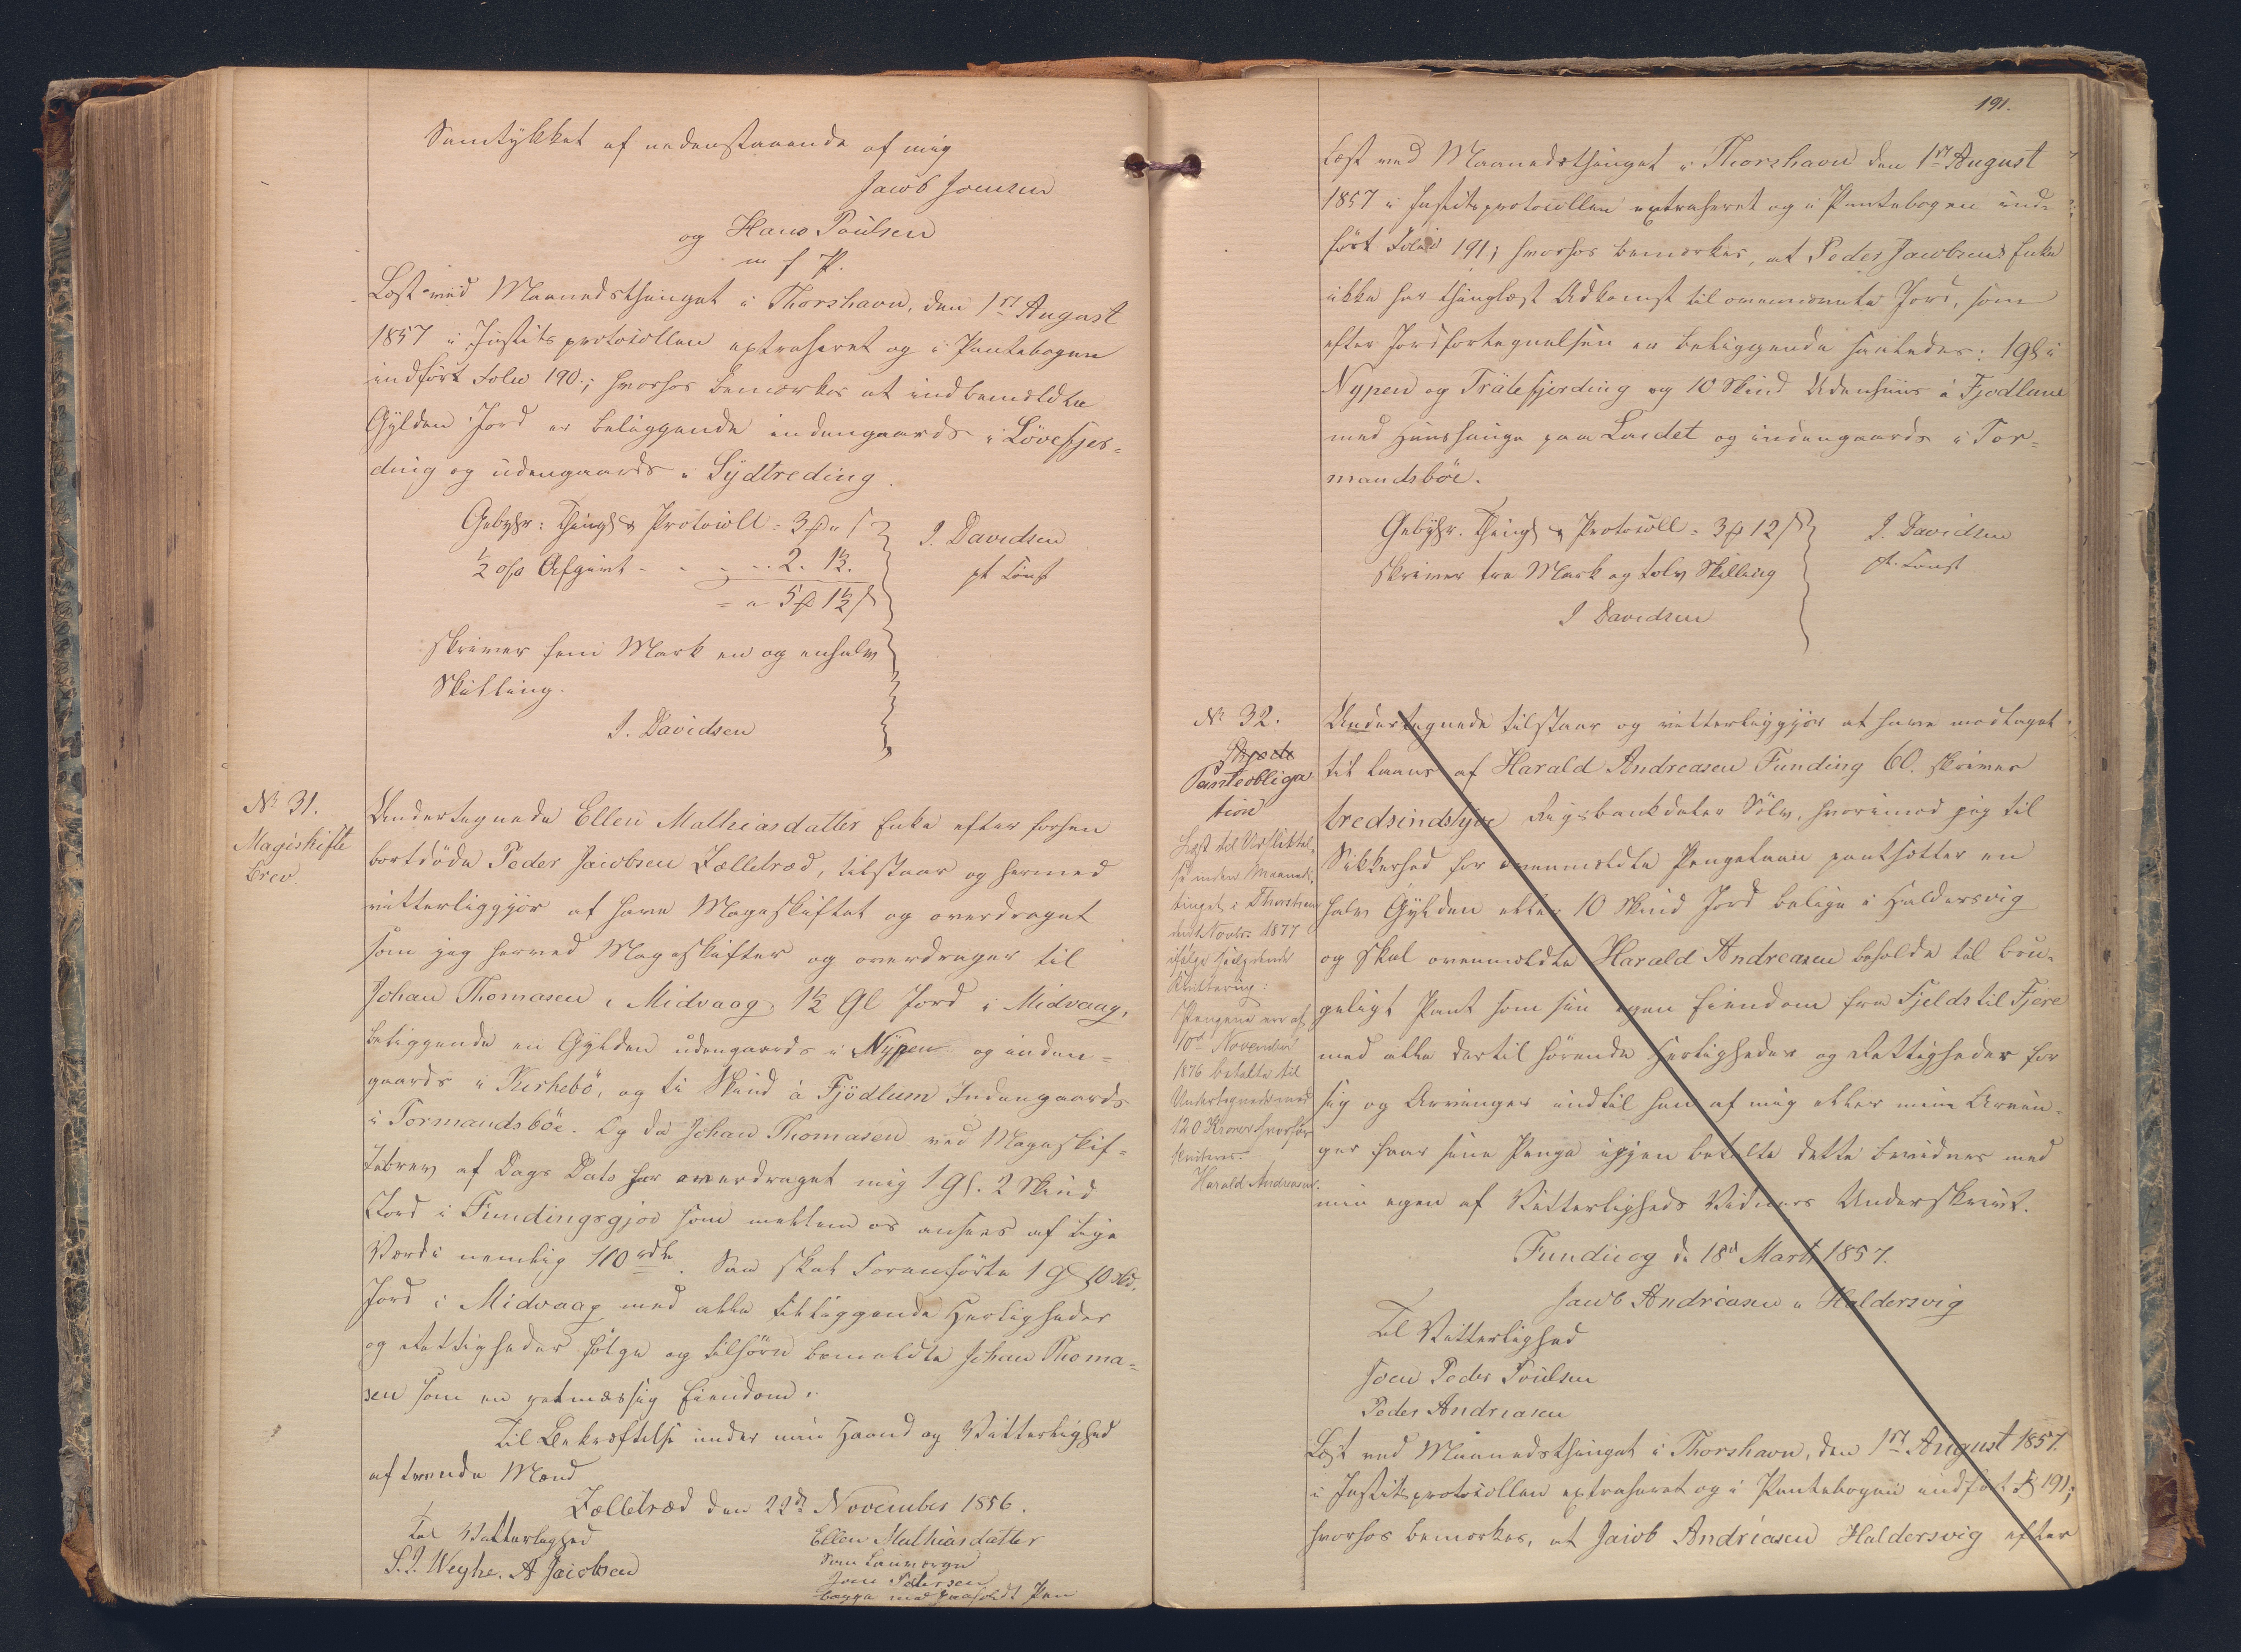 Samtykket af nedenstaaende af mig
Jacob Joensen
og Hans Poulsen
m f P.
Læst ved Maanedsthinget i Thorshavn, den 1ste August
1857 i Justitsprotocollen extraheret og i Pantebogen
indført Folio 190; hvorhos bemærkes at indbemeldte
Gylden Jord er beliggende indengaards i Lövefjer-
ding og udengaards i Sydtreding.
Gebyhr: Thingl & Protocoll = 3 " ß
½ o/o Afgivt - - - 2. 1½.
= 5 1½ ß
skriver fem Mark en og enhalv
Skilling.
J. Davidsen
J. Davidsen
pt Const
No 31.
Mageskifte
Brev.
Undertegnede Ellen Mathiasdatter Enke efter forhen
bortdöde Peder Jacobsen Zælletræd, tilstaar og hermed
vitterliggjör at have Mageskiftet og overdraget
som jeg herved Mageskifter og overdrager til
Johan Thomasen i Midvaag 1½ Gl Jord i Midvaag,
beliggende en Gylden udengaards i Nypen og inden-
gaards i Kirkebö, og ti Skind á Fjödlum Indengaards
i Tormandsböe. Og da Johan Thomasen ved Mageskif-
tebrev af Dags Dato har overdraget mig 1 Gl. 2 Skind
Jord i Fundingsgjov som mellem os ansees af lige
Værdi nemlig 110 rdl. Saa skal foranförte 1 G 10 Skd.
Jord i Midvaag med alle tilliggende Herligheder
og Rettigheder fölge og tilhöre bemeldte Johan Thoma-
sen som en retmæssig Eiendom.
Til Bekræftelse under min Haand og Vitterlighed
af tvende Mænd
Zælletræd den 22de November 1856.
Til Vitterlighed
S. J. Weyhe. A Jacobsen
Ellen Mathiasdatter
Som Lauværge
Joen Petersen
begge med paaholdt Pen
191.
Læst ved Maanedsthinget i Thorshavn den 1ste August
1857 i Justitsprotocollen extraheret og i Pantebogen ind-
ført Folio 191; hvorhos bemærkes, at Peder Jacobsens Enke
ikke har thinglæst Adkomst til ovennævnte Jord, som
efter Jordfortegnelsen er beliggende saaledes: 1 Gl i
Nypen og Trälefjerding og 10 Skind Udenhuus á Fjodlum
med Huushauge paa Lardet og indengaards i Tor-
mandsböe.
Gebyhr. Thingl & Protocoll = 3 12 ß
skriver tre Mark og tolv Skilling
J Davidsen
J. Davidsen
pt. Const
No 32.
Skjøde
Panteobliga-
tion
Læst til Udslettel-
se inden Maaneds-
tinget i Thorshavn
den 1 Novbr. 1877
ifølge saalydende
Kvittering:
Pengene ere af
10d November
1876 betalte til
Undertegnede med
120 Kroner hvorfor
kvitteres.
Harald Andreasen.
Undertegnede tilstaar og vitterliggjör at have modtaget
til Laans af Harald Andreasen Funding 60. skriver
tredsindstyve Rigsbankdaler Sölv, hvorimod jeg til
Sikkerhed for ovenmeldte Pengelaan pantsötter en
halv Gylden eller 10 Skind Jord belige i Haldersvig
og skal ovenmeldte Harald Andreasen beholde til bru-
geligt Pant som sin egen Eiendom fra Fjelds til Fjere
med alle dertil hörende Herligheder og Rettigheder for
sig og Arvinger indtil han af mig eller mine Arvin-
ger faar sine Penge igjen betalte dette bevidnes med
min egen af Vitterligheds Vidners Underskrivt.
Funding d. 18d Marti 1857.
Jacob Andreasen i Haldersvig
Til Vitterlighed
Joen Peder Poulsen
Peder Andreasen
Læst ved Maanedsthinget i Thorshavn, den 1ste August 1857.
i Justitsprotocollen extraheret og i Pantebogen indført F 191;
hvorhos bemærkes, at Jacob Andreasen Haldersvig efter